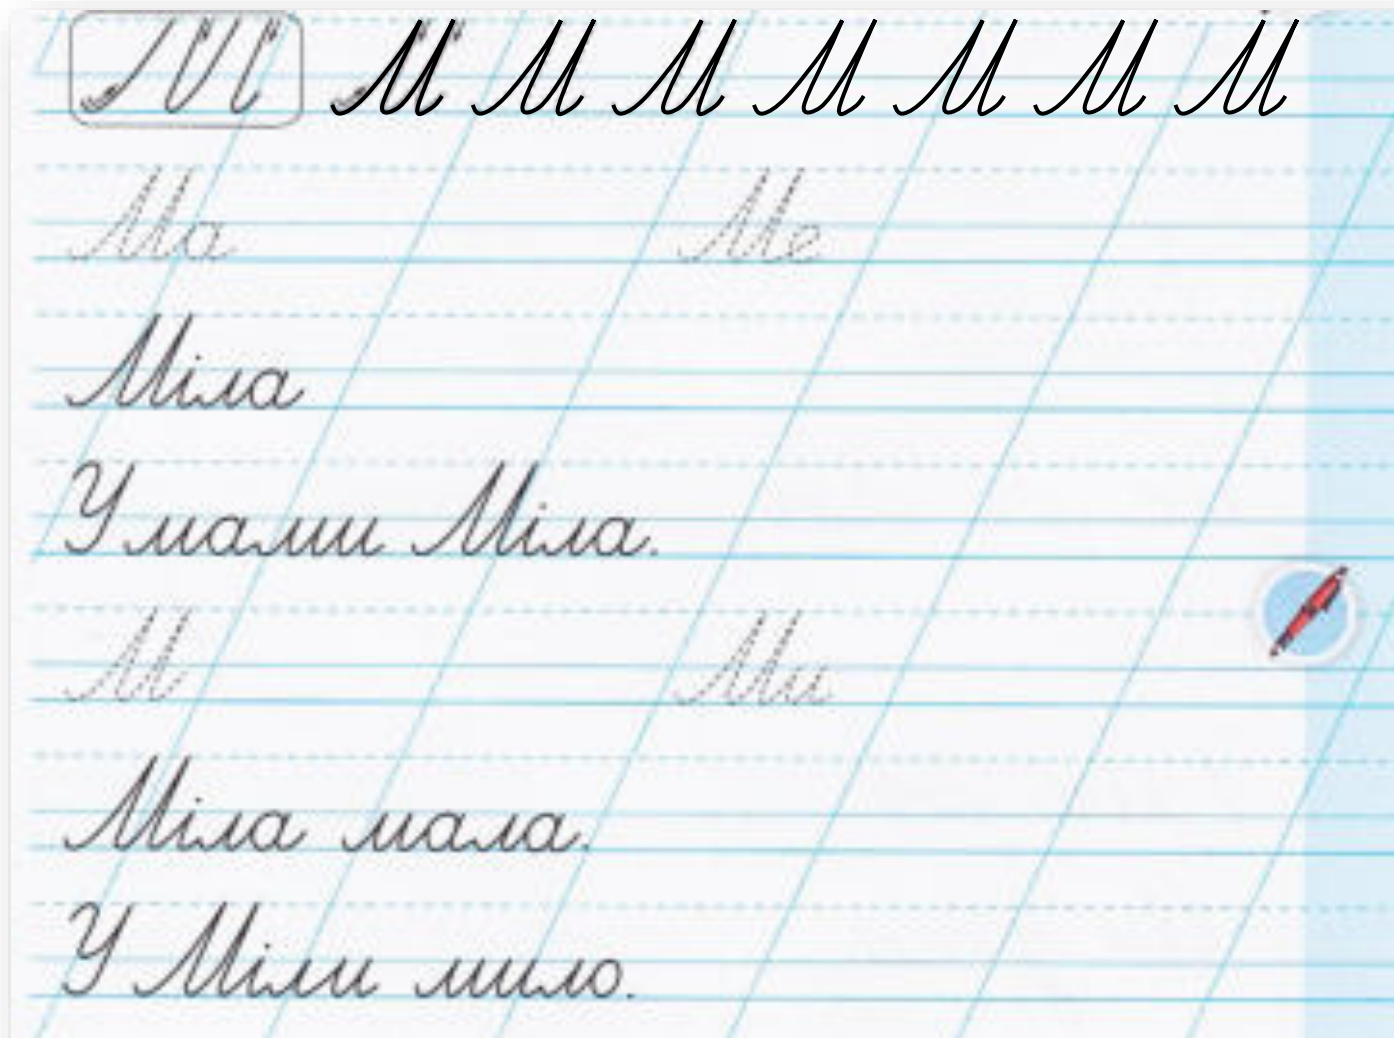 М М М М М М М М
Ма Ме
Міла
У мами Міла.
М Ми
Міла мала.
У Міли мило.